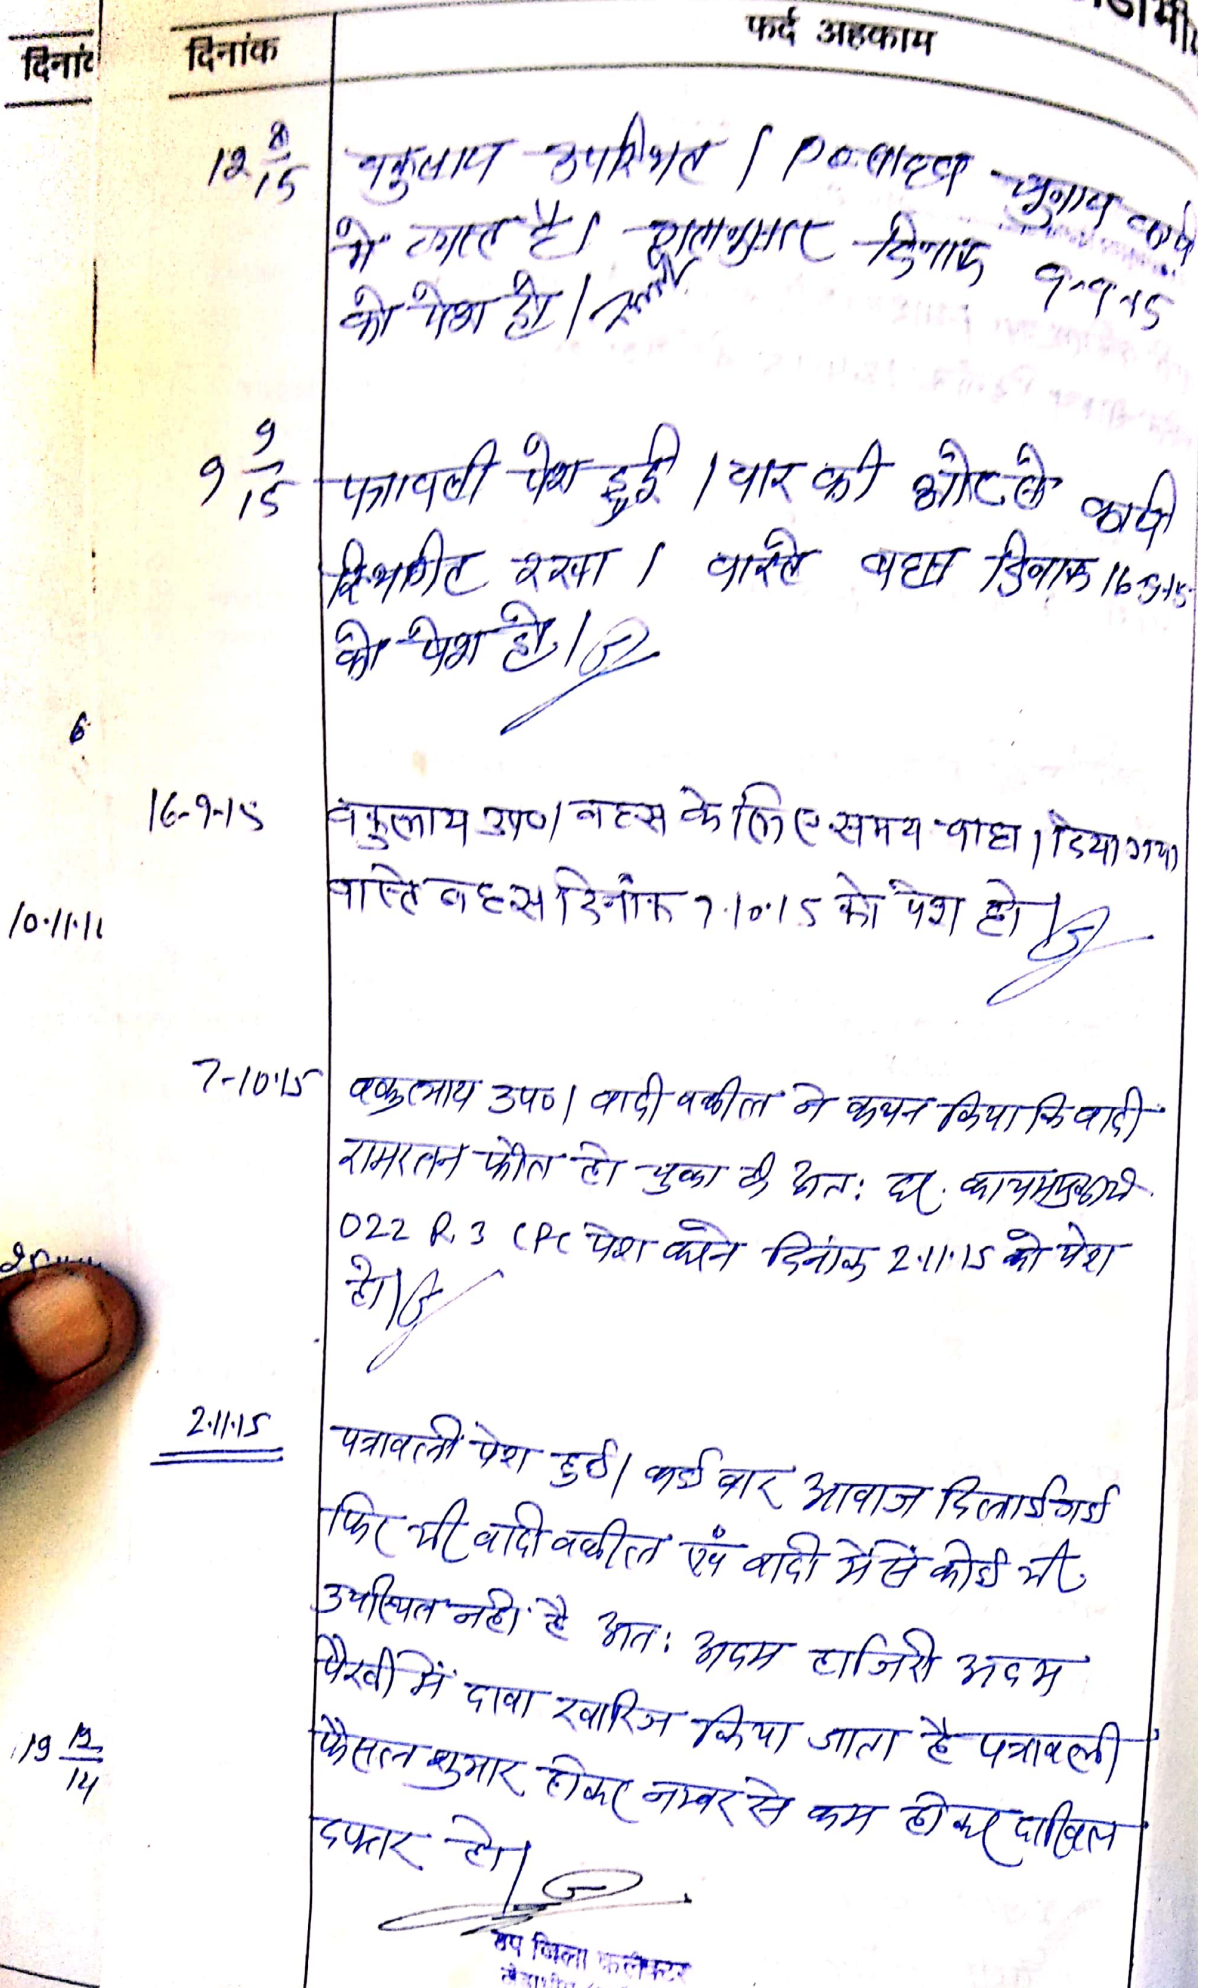 दिनांक
फर्द अहकाम
12 8/15
वकुलाय उपस्थित । P.O. साहब चुनाव कार्य
में व्यस्त है। हालानुसार दिनांक 9-9-15
को पेश हो।
9 9/15
पत्रावली पेश हुई । बार की ओर से कार्य
स्थगित रखा । वास्ते बहस दिनांक 16-9-15
को पेश हो।
6
16-9-15
वकुलाय उप0। बहस के लिए समय चाहा । दिया गया
वास्ते बहस दिनांक 7.10.15 को पेश हो।
10.11.11
7-10-15
वकुलाय उप0। वादी वकील ने कथन किया कि वादी
रामरतन फौत हो चुका है अतः दर. कायममुकामी
022 R.3 CPC पेश करने दिनांक 2.11.15 को पेश
हो।
2.11.15
पत्रावली पेश हुई। कई बार आवाज दिलाई गई
फिर भी वादी वकील एवं वादी में से कोई भी
उपस्थित नहीं है अतः अदम हाजिरी अदम
पैरवी में दावा खारिज किया जाता है पत्रावली
फैसल शुमार होकर नम्बर से कम होकर दाखिल
दफ्तर हो।
19 12/14
उप जिला कलेक्टर